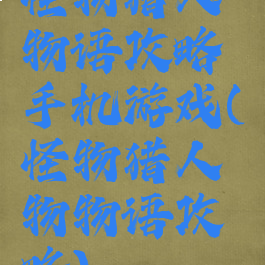 怪物猎人
物语攻略
手机游戏(
怪物猎人
物物语攻
略)